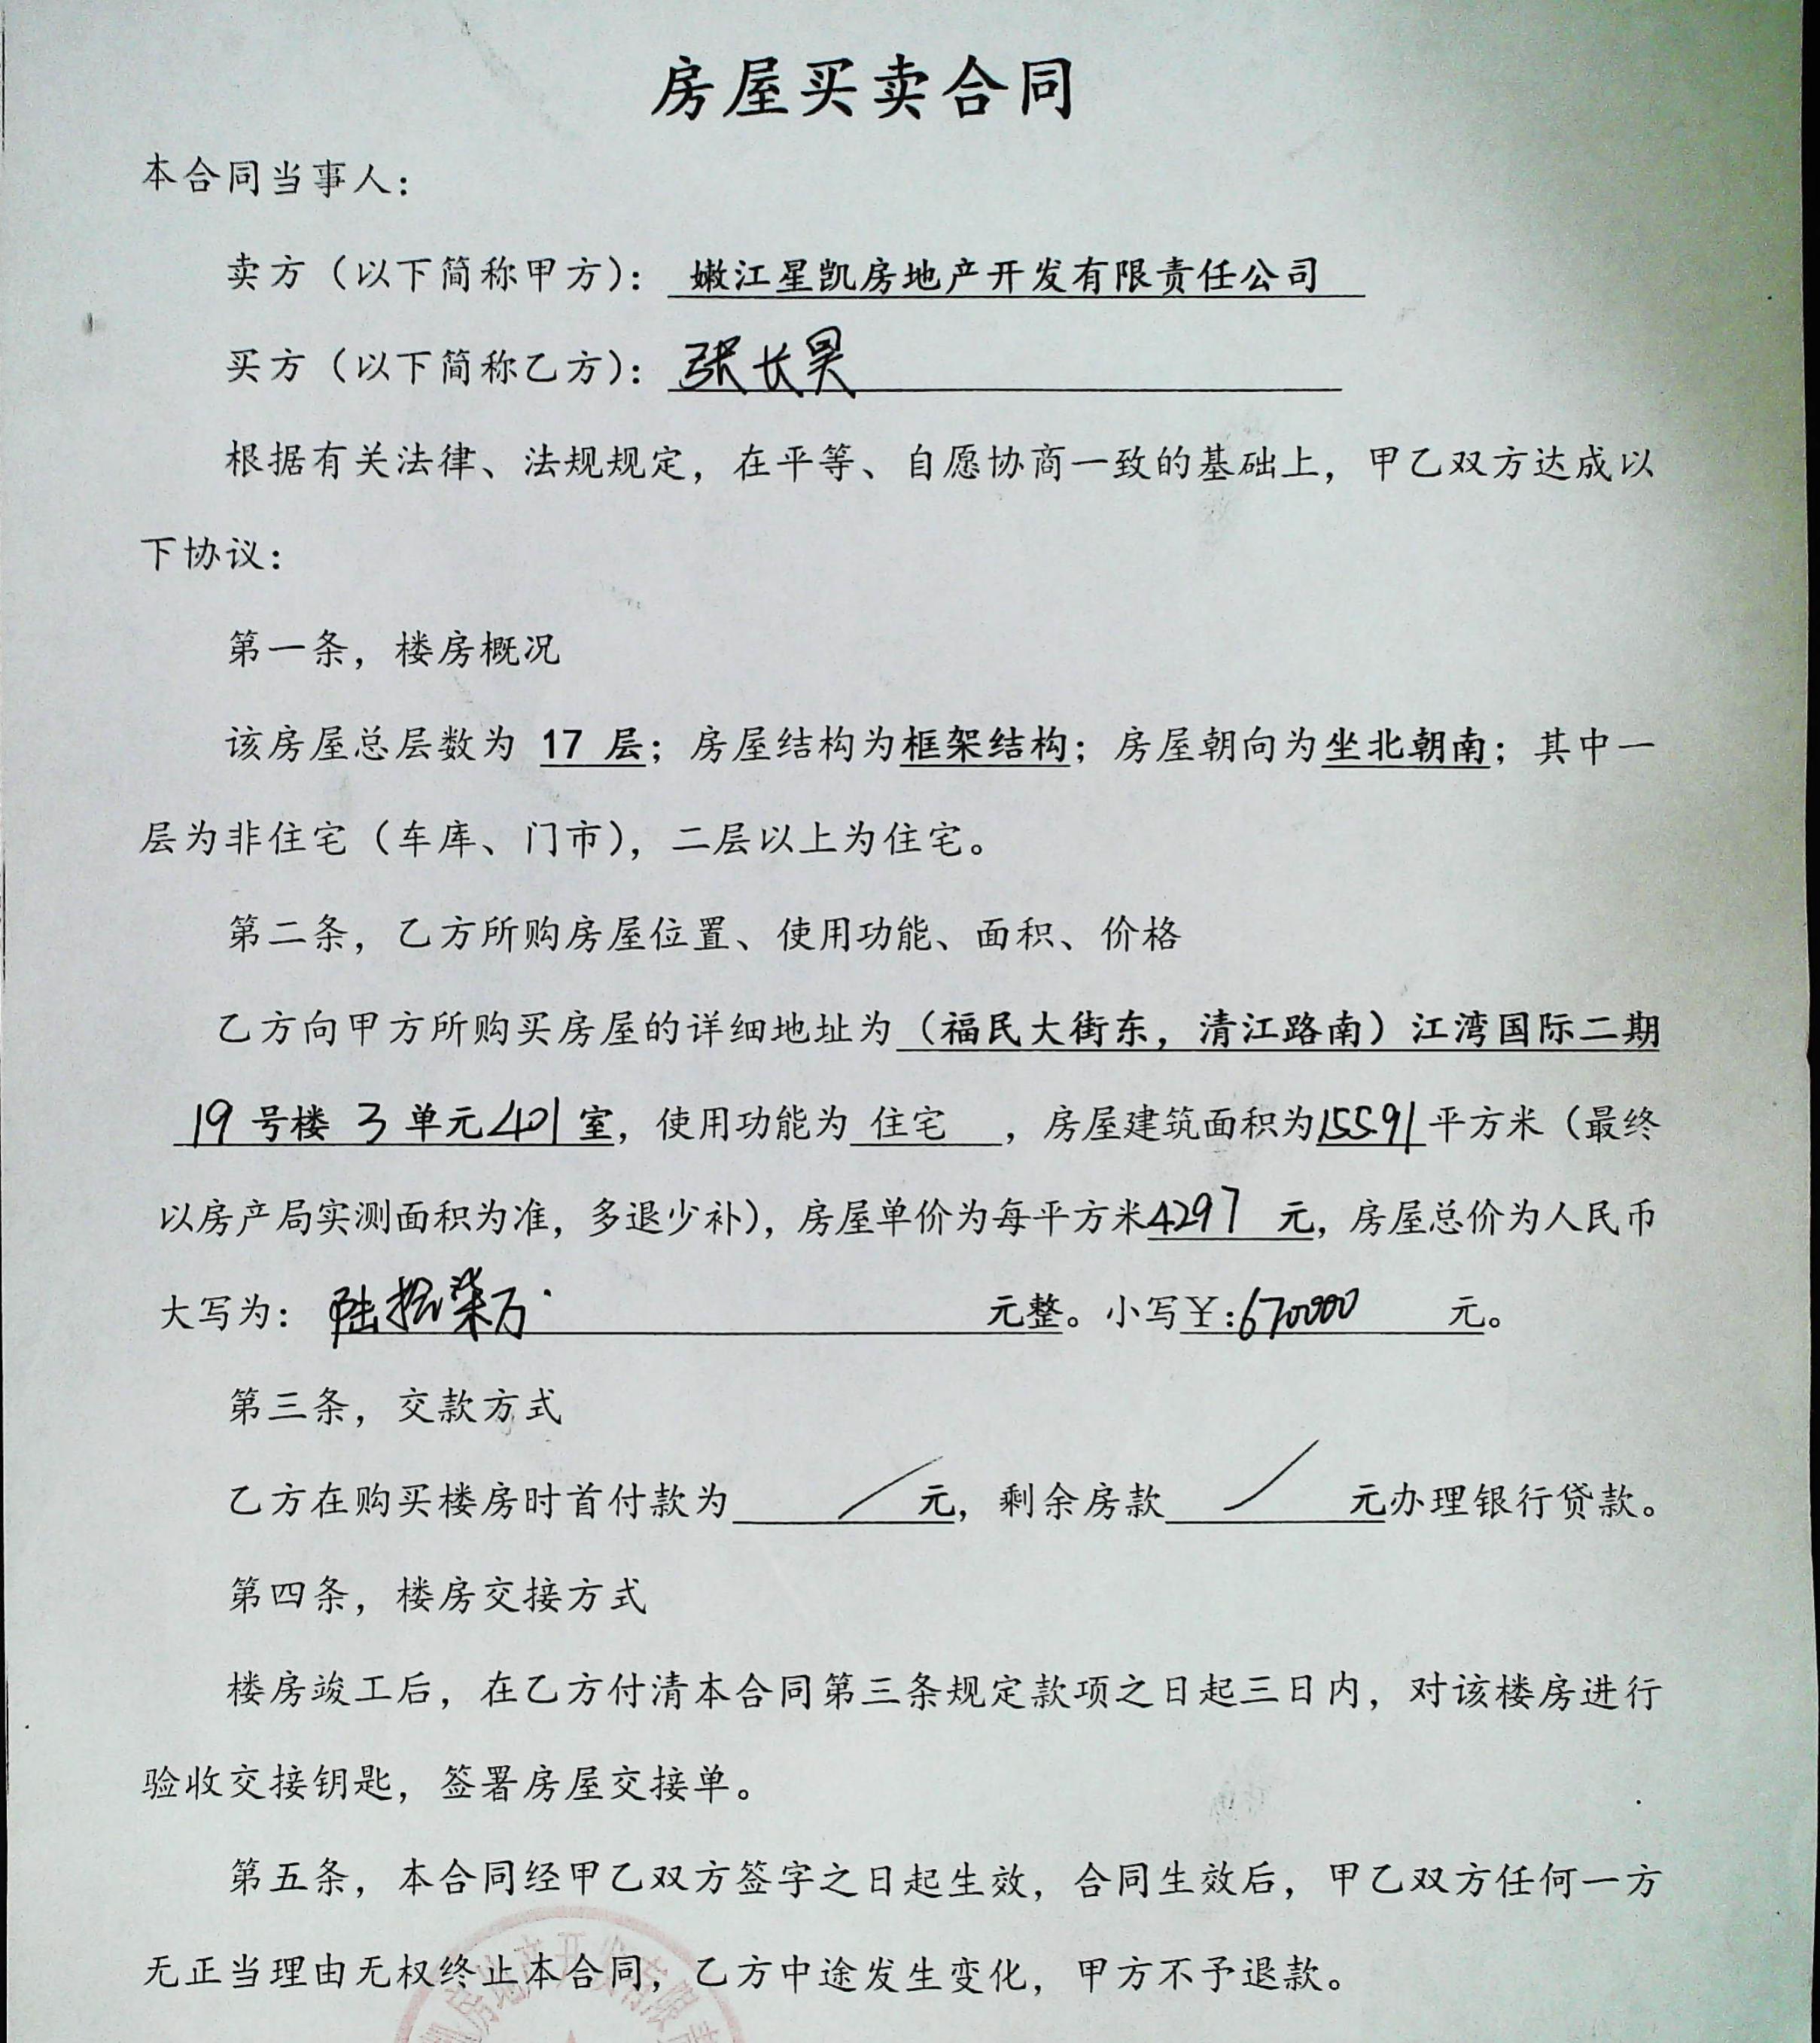 房屋买卖合同
本合同当事人：
卖方（以下简称甲方）： 嫩江星凯房地产开发有限责任公司
买方（以下简称乙方）：张长昊
根据有关法律、法规规定，在平等、自愿协商一致的基础上，甲乙双方达成以
下协议：
第一条，楼房概况
该房屋总层数为 17 层；房屋结构为框架结构；房屋朝向为坐北朝南；其中一
层为非住宅（车库、门市），二层以上为住宅。
第二条，乙方所购房屋位置、使用功能、面积、价格
乙方向甲方所购买房屋的详细地址为（福民大街东，清江路南）江湾国际二期
19 号楼 3 单元401室，使用功能为 住宅 ，房屋建筑面积为155.91平方米（最终
以房产局实测面积为准，多退少补），房屋单价为每平方米4297 元，房屋总价为人民币
大写为：陆拾柒万 元整。小写￥:670000 元。
第三条，交款方式
乙方在购买楼房时首付款为 / 元，剩余房款 / 元办理银行贷款。
第四条，楼房交接方式
楼房竣工后，在乙方付清本合同第三条规定款项之日起三日内，对该楼房进行
验收交接钥匙，签署房屋交接单。
第五条，本合同经甲乙双方签字之日起生效，合同生效后，甲乙双方任何一方
无正当理由无权终止本合同，乙方中途发生变化，甲方不予退款。
凯房地产开发有限责